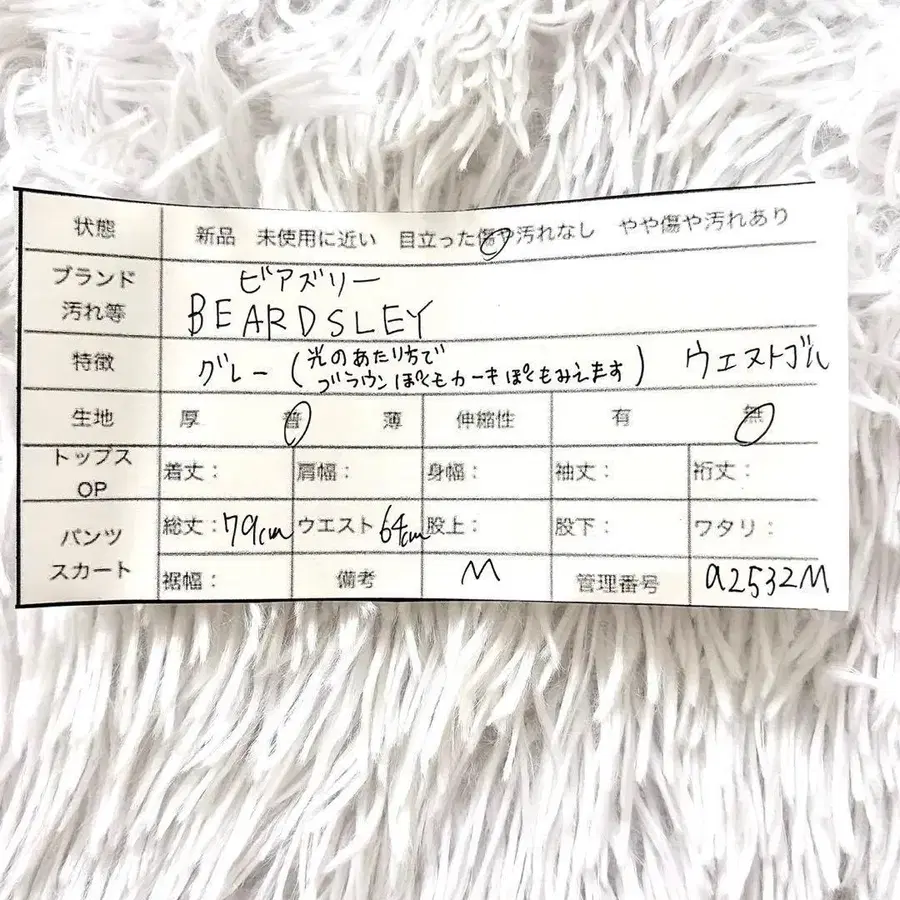 状態 新品 未使用に近い 目立った傷や汚れなし やや傷や汚れあり
ブランド ビアズリー
汚れ等 BEARDSLEY
特徴 グレー(光のあたり方で ウエストゴム
ブラウンぽくもカーキぽくもみえます)
生地 厚 普 薄 伸縮性 有 無
トップス 着丈: 肩幅: 身幅: 袖丈: 裄丈:
OP
パンツ 総丈:79cm ウエスト 64cm 股上: 股下: ワタリ:
スカート 裾幅: 備考 M 管理番号 a2532M